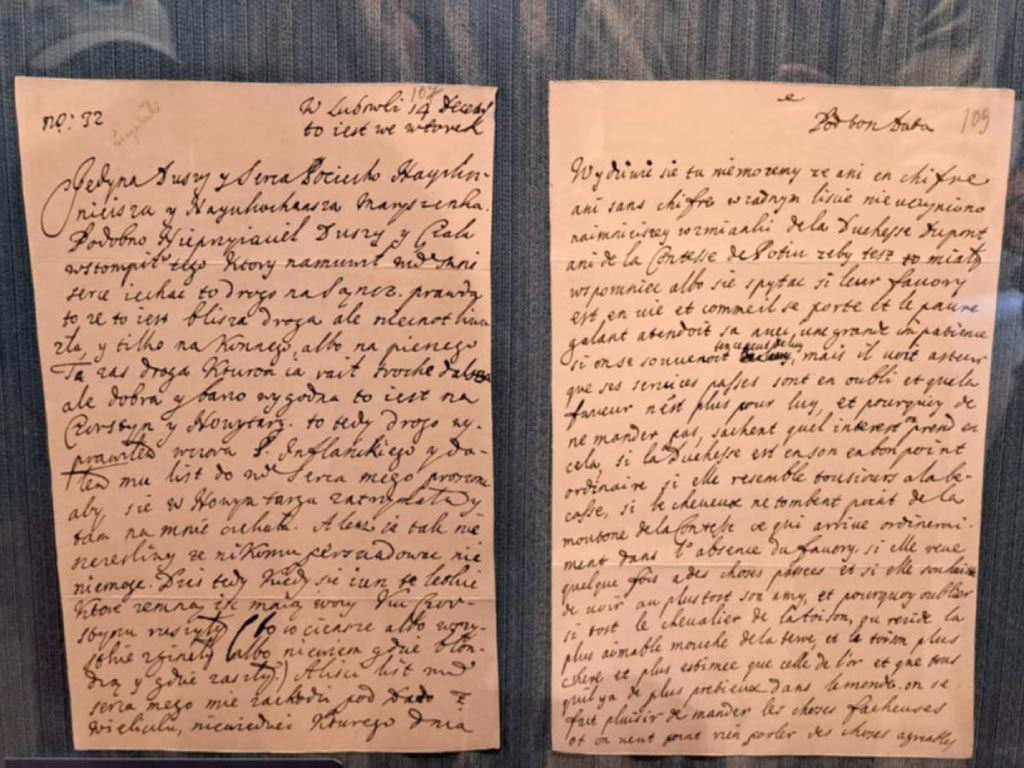 no: 32
107
W Lubowli 14 Decemb
to iest we wtorek
Jedyna Duszy y Serca Pociecho Nayslicz-
nieisza y Nayukochansza Maryszenko.
Podobno Nieprzyiaciel Duszy y Ciala
wstompił w tego ktory namuwił md serce
serce iechac to drogo na Sącz. prawda
to ze to iest blisza droga ale
zła, y tilko na konnego, albo na piesego
Ta zas droga kturon ia trochę dalsza
ale dobra y barzo wygodna to iest na
Czorstyn y Nowytarg. to tedy drogo wy-
prawiłem wczora P. Inflanskiego y da-
łem mu list do md Serca mego proszonc
aby, sie w Nowym targu zatrzymała y
tam na mnie czekała. Alem ia tak nie
szczesliwy ze nikomu perszwadowac nie
niemoge. Dzis tedy kiedy sie iusz te
ktore zemną isc maią wozy ku Czor-
sztynu ruszyły (bo io cięnsze albo wozy
albo niewiem gdzie błon-
dzą y gdzie zaszły.) Alisci list md
serca mego mie zachodzi pod Dato z
Wieliczki, niewiedziec kturego dnia
109
Pod bon Data
Wydziwic sie tu niemozemy ze ani en chifre
ani sans chifre w zadnym liscie nieuczyniono
naimnieiszey wzmianki de la Duchesse Dupont
ani de la Contesse de Potiu zeby tesz to miały
wspomniec albo sie spytac si leur favory
est en vie et comme il se porte et le pauvre
galant atendoit sa avec une grande impatience
si on se souvenoit de luy, mais il voit asteur
que ses services passes sont en oubli et que la
faveur n'est plus pour luy, et pourquoy de
ne mander pas, sachent quel interest on prend en
cela, si la Duchesse est en son en bon point
ordinaire si elle resemble tousiours a la be-
casse, si le cheveux ne tombent point de la
moutone de la Contesse ce qui arrive ordinerai-
ment dans l'absence du favory, si elle reve
quelque fois a des choses passees et si elle souhaite
de voir au plus tost son amy, et pourquoy oublier
si tost le chevalier de la toison, qu reside la
plus aimable mouche de la terre, et la toison plus
chere et plus estimee que celle de l'or et que tous
qu'il y a de plus pretieux dans le monde. on se
fait plaisir de mander les choses facheuses
et on veut point rien parler des choses agreables